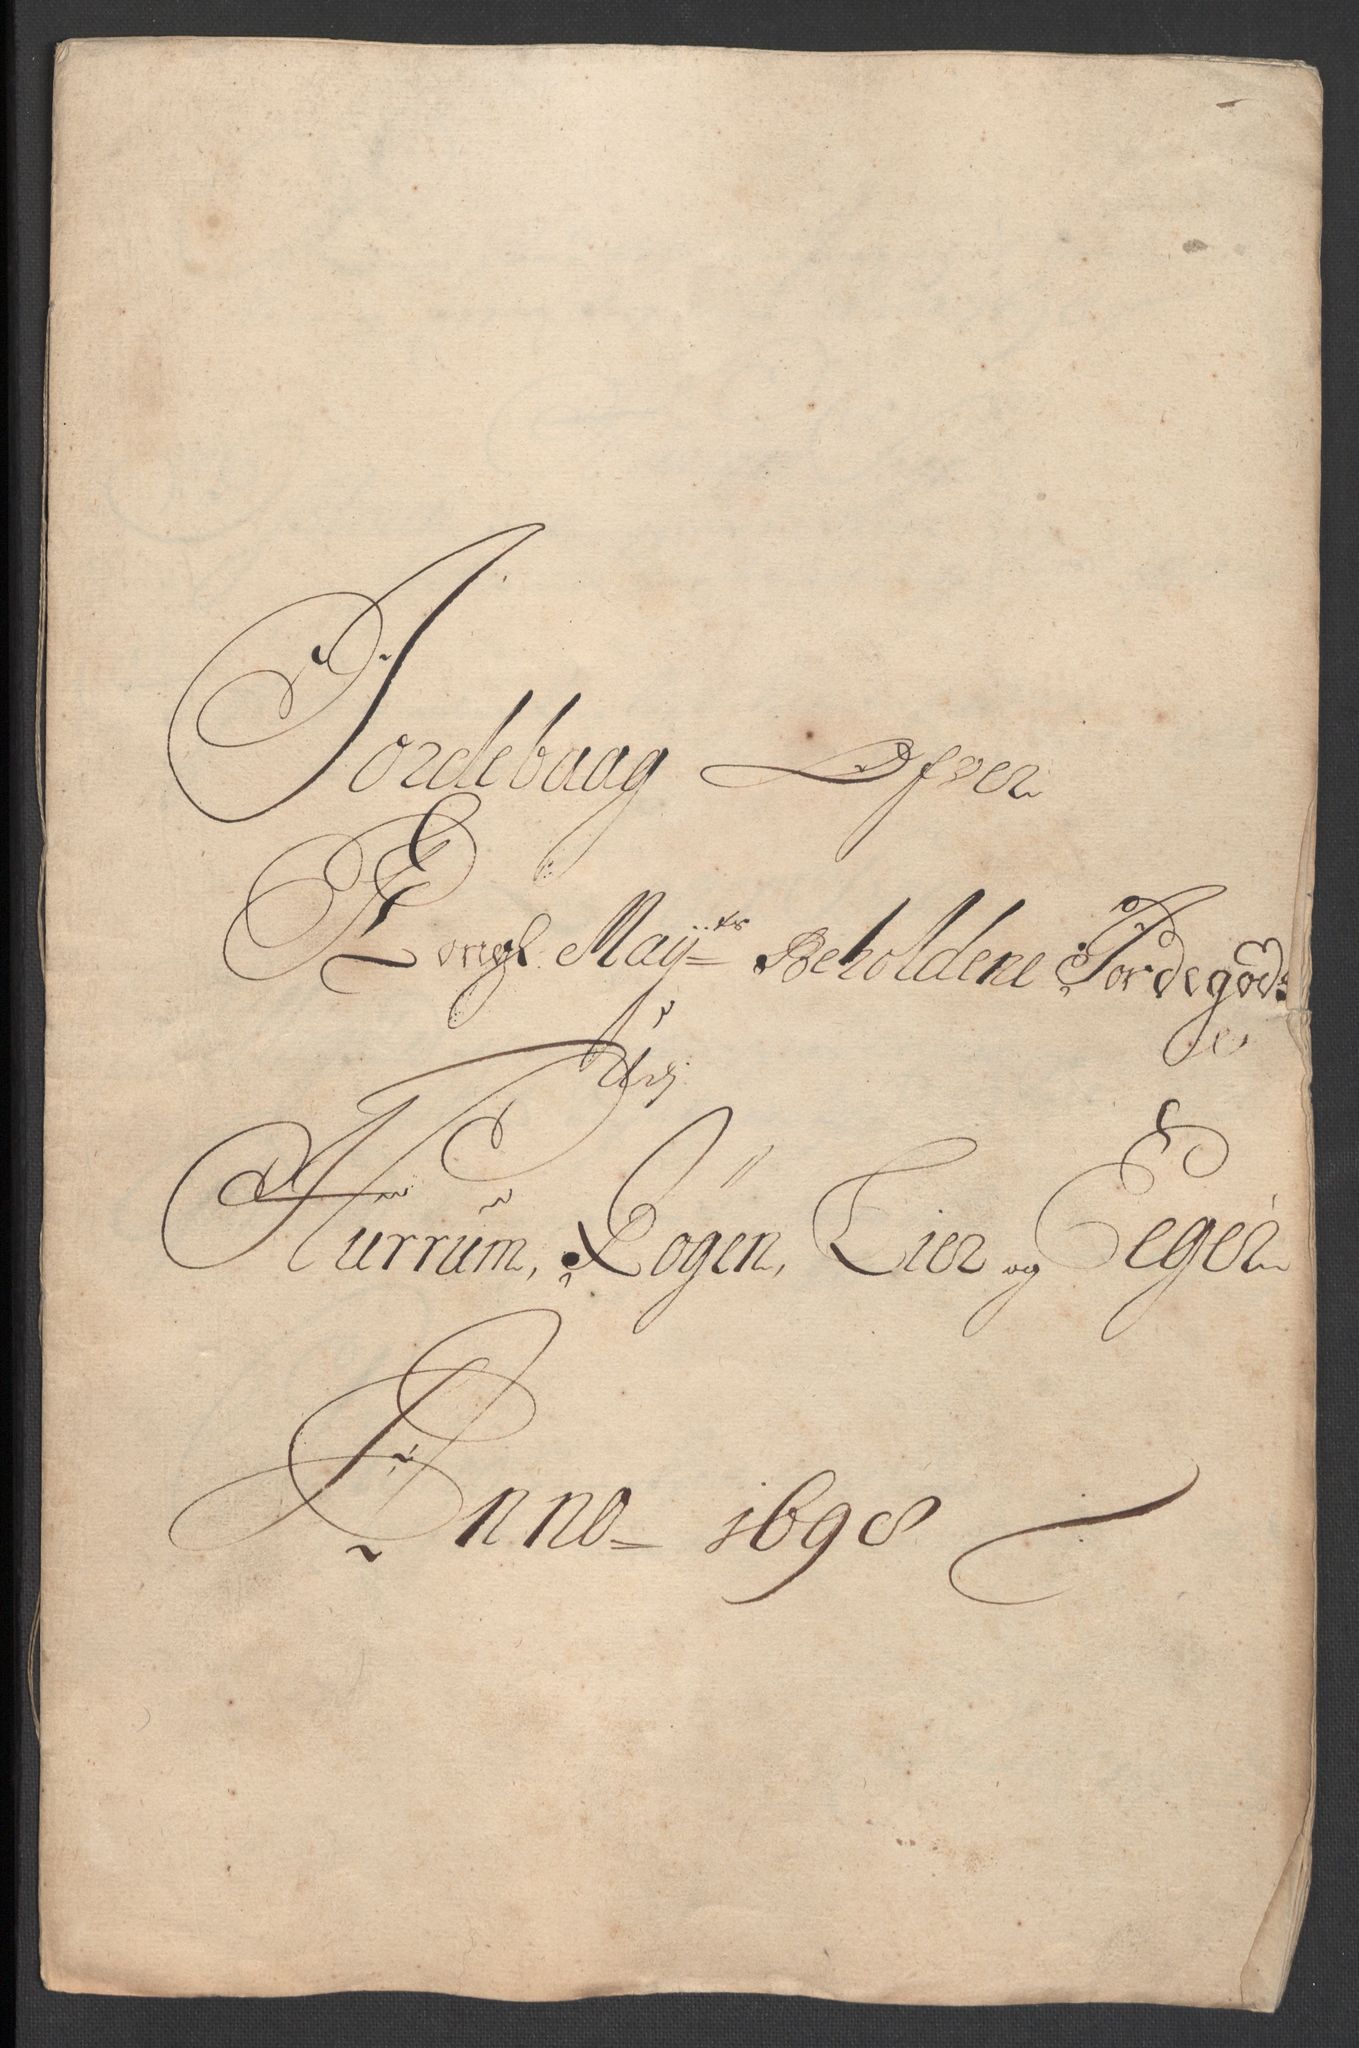 Jordebaag Ofver
Kongl. Maÿ:ts Beholdene Jordegods
e
Udj
Hurrum, Rogen, Lier og Eeger
Anno 1698